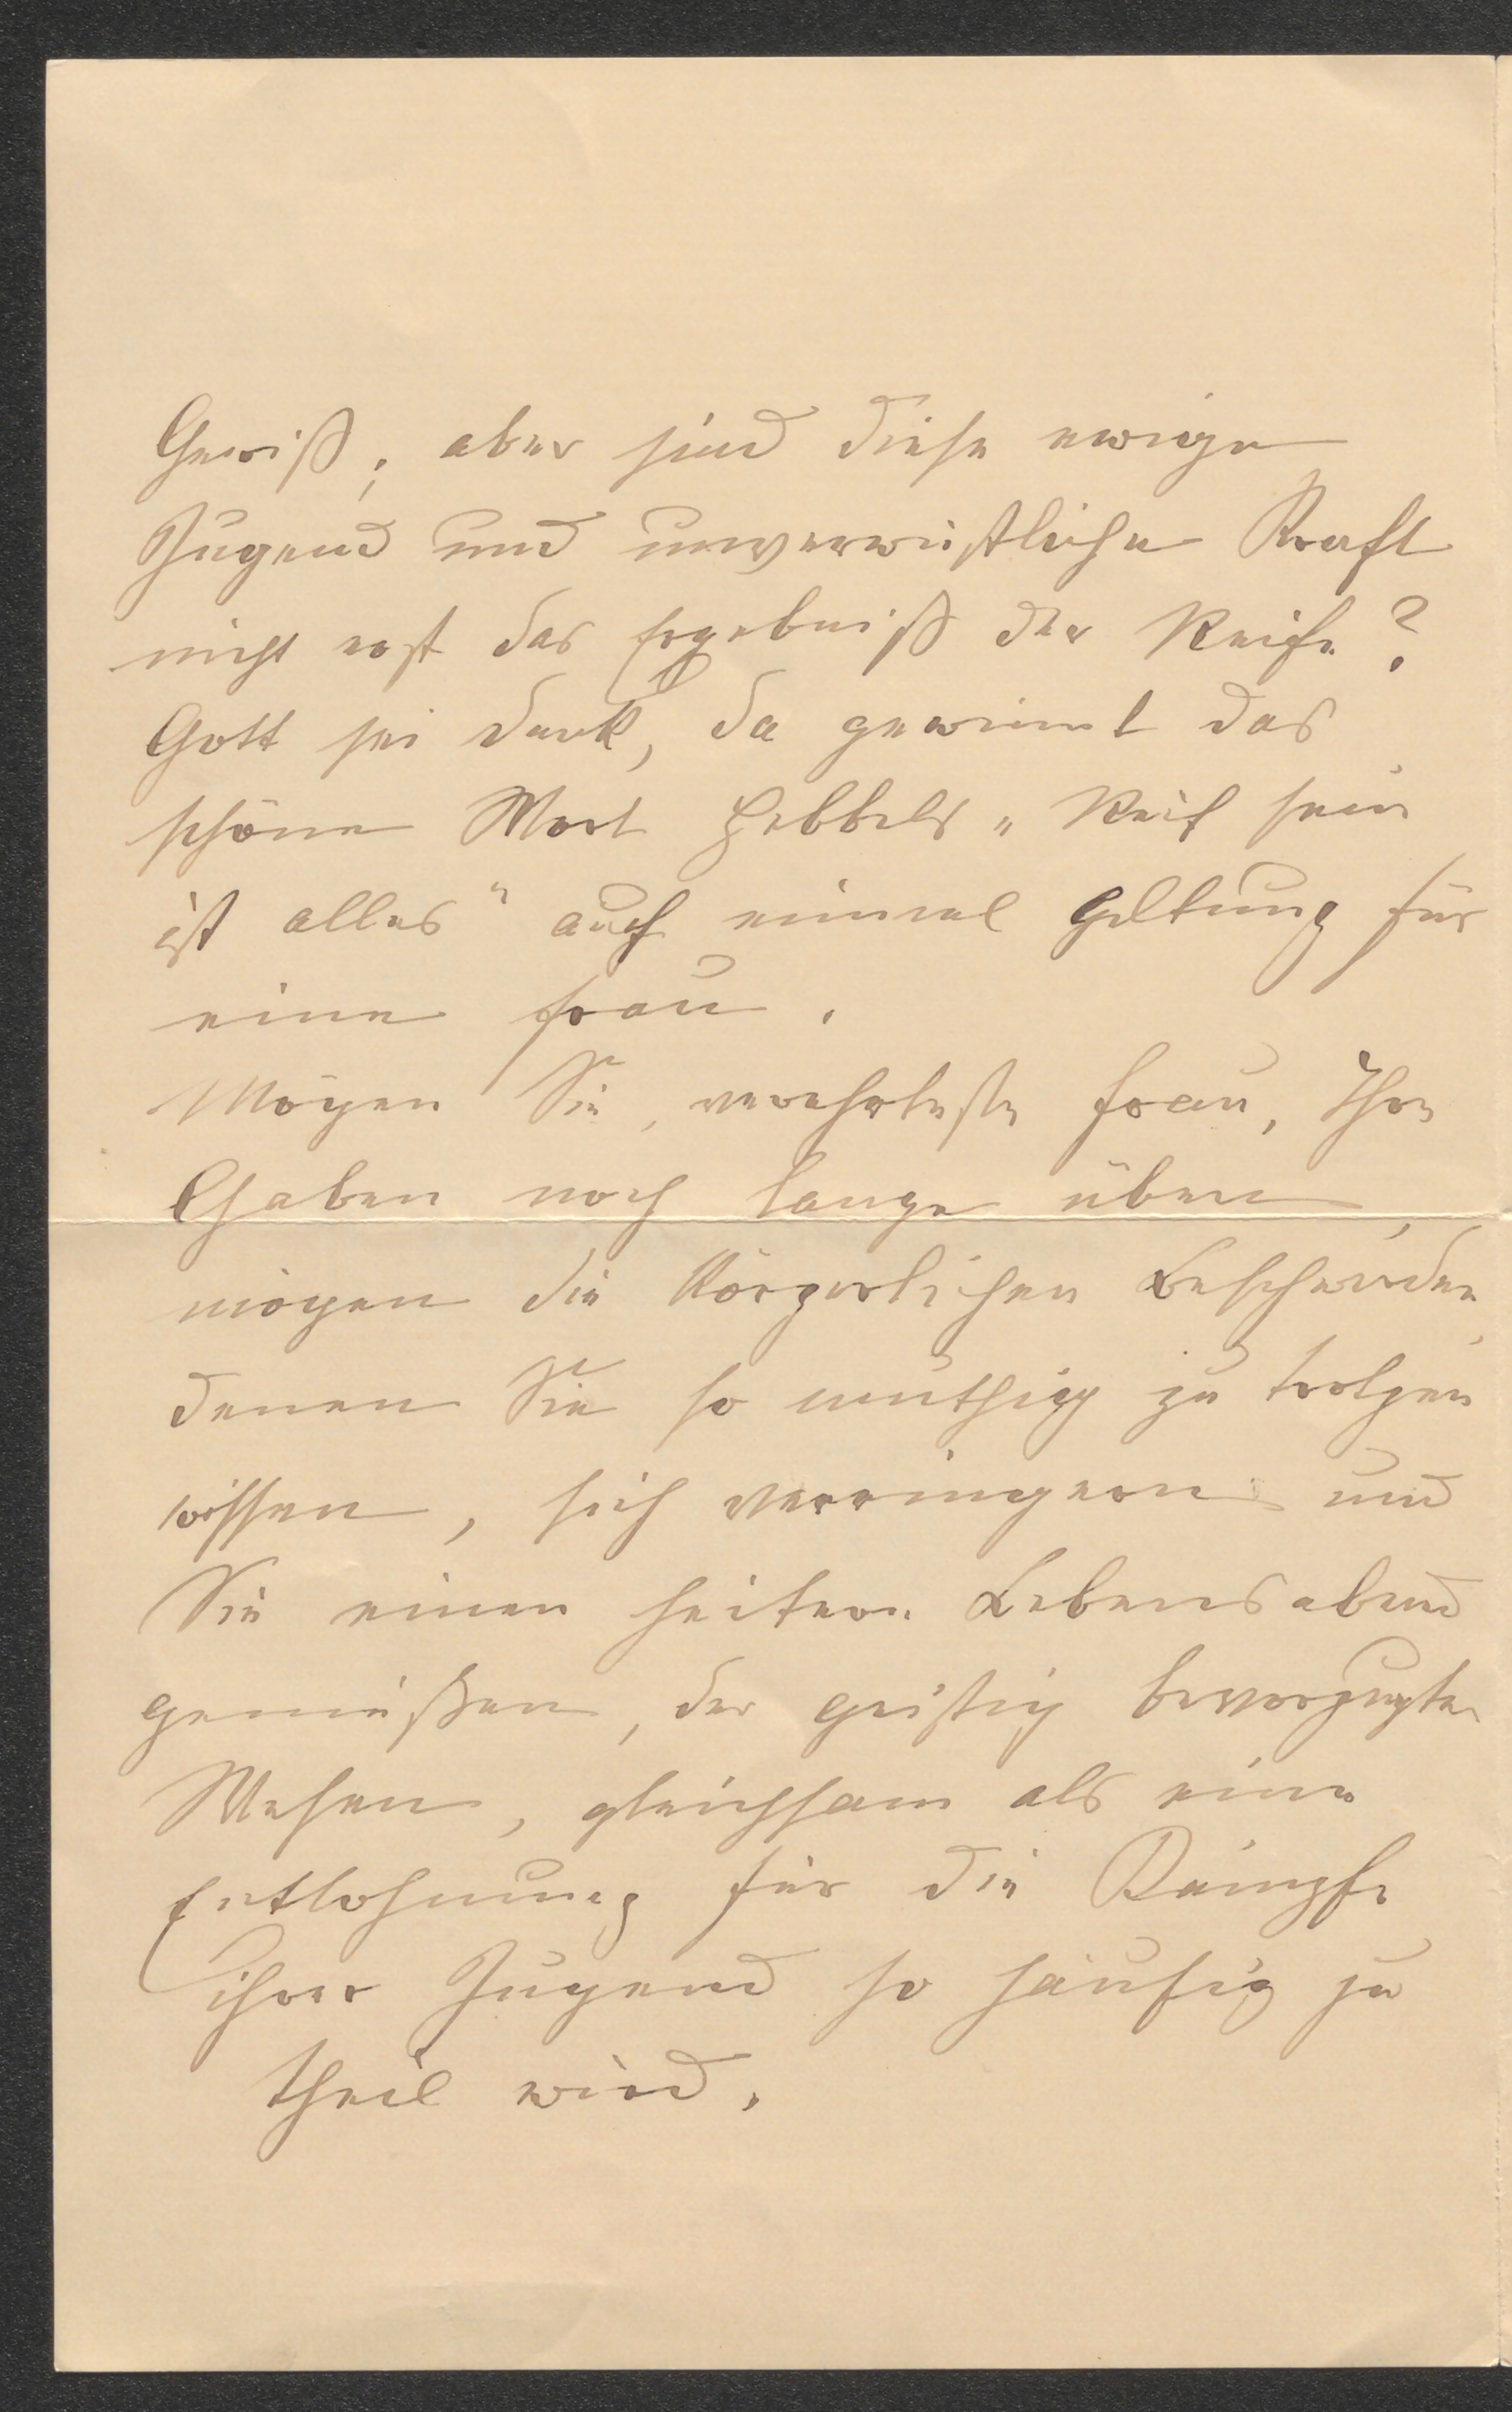 Gewiß, aber sind diese ewige
Jugend und unverwüstliche Kraft
nicht erst das Ergebniß der Reife?
Gott sei dank, da gewinnt das
schöne Wort Hebbels „Reif sein
ist alles" auch einmal Geltung für
eine Frau.
Mögen Sie, verehrteste Frau, Ihre
Gaben noch lange üben,
mögen die körperlichen Beschwerden,
denen Sie so muthig zu trotzen
wissen, sich verringern und
Sie einen heitern Lebensabend
genießen, der geistig bevorzugten
Wesen, gleichsam als eine
Entlohnung für die Kämpfe
ihrer Jugend so häufig zu
theil wird.